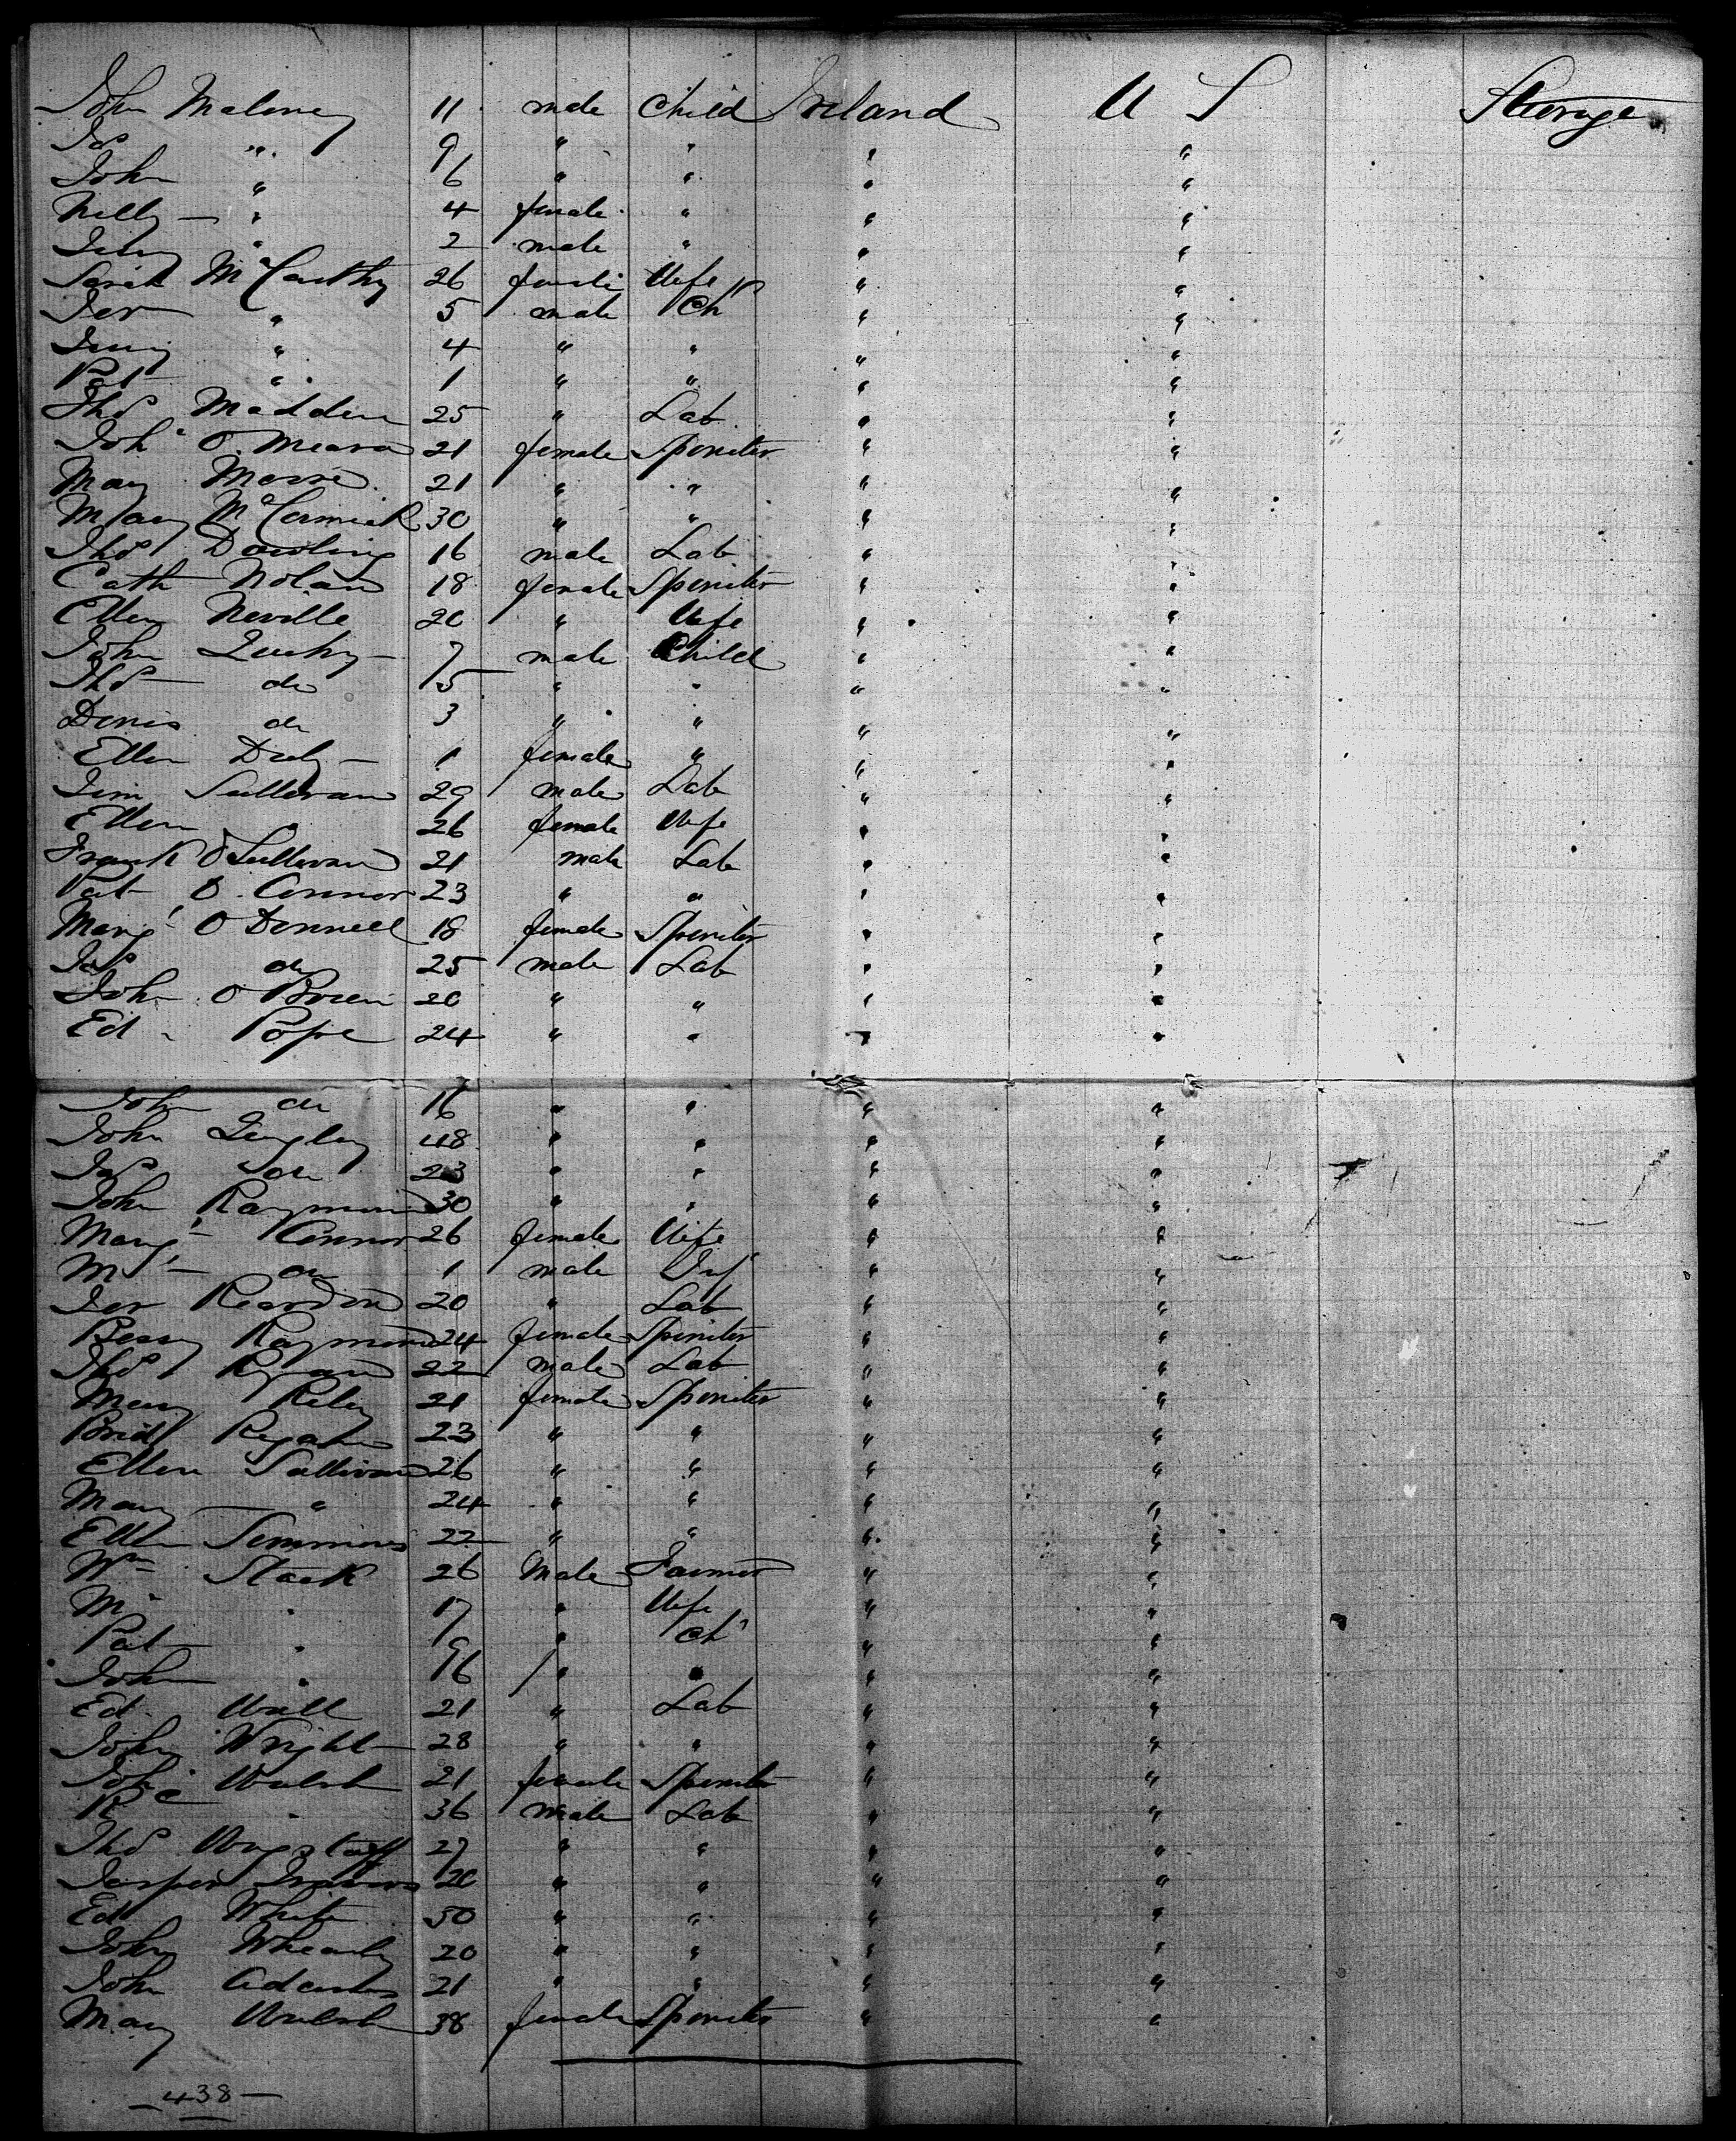 John Maloney 11 male Child Ireland U S Steerage
Jas " 9 " " " "
John " 6 " " " "
Nelly — " 4 female " " "
" 2 male " " "
Sarah McCarthy 26 female Wife " "
Jer " 5 male Ch " "
" 4 " " " "
Pat " 1 " " " "
Thos Madden 25 " Lab " "
Joh a O.Meara 21 female Spinster " "
Mary 21 " " " "
Mary McCormick 30 " " " "
Thos Dowling 16 male Lab " "
Cath Nolan 18 female Spinster " "
Ellen Neville 20 " Wife " "
John 7 male Child " "
Thos do 5 " " " "
Denis do 3 " " " "
Ellen 1 female " " "
Jim Sullivan 29 male Lab " "
Ellen " 26 female Wife " "
Frank O Sullivan 21 male Lab " "
Pat O. Connor 23 " " " "
Marg t O Donnell 18 female Spinster " "
Jas do 25 male Lab " "
John O Brien 20 " " " "
Ed Pope 24 " " " "
John do 16 " " " "
John 48 " " " "
Jas do 23 " " " "
John Raymond 30 " " " "
Marg t Connor 26 female Wife " "
Ml — do 1 male Inf " "
Jer Reardon 20 " Lab " "
Bessy Raymond 24 female Spinster " "
Thos Ryan 22 male Lab " "
Mary Riley 21 female Spinster " "
Brid Regan 23 " " " "
Ellen Sullivan 26 " " " "
Mary " 24 " " " "
Ellen Timmons 22 " " " "
Wm Stack 26 Male Farmer " "
M " 17 " Wife " "
Pat " 9 " Ch " "
John " " " " "
Ed. Wall 21 " Lab " "
John Wright 28 " " " "
Joh a Walsh 21 female Spinster " "
R " 36 male Lab " "
Thos Wagstaff 27 " " " "
Jasper 20 " " " "
Ed White 50 " " " "
John 20 " " " "
John Adams 21 " " " "
Mary Walsh 38 female Spinster " "
— 438 —